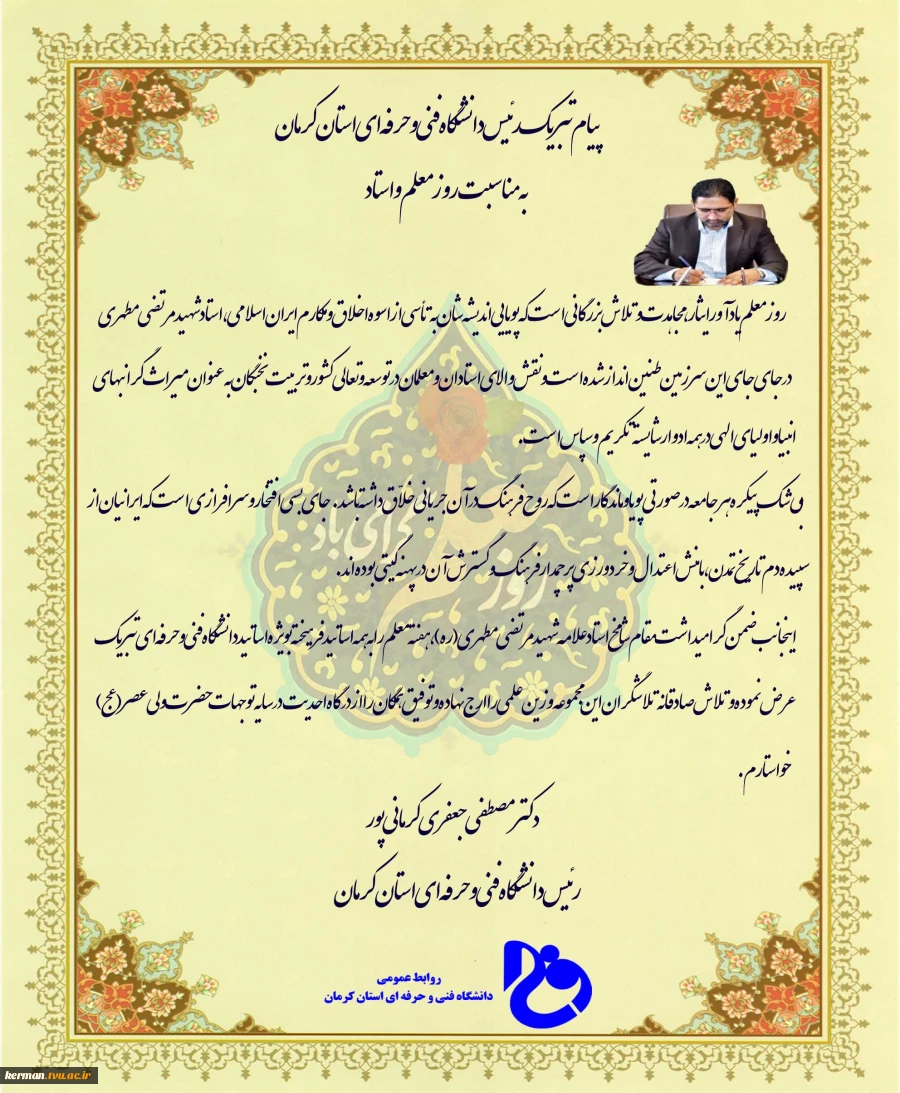 پیام تبریک رئیس دانشگاه فنی و حرفه ای استان کرمان
به مناسبت روز معلم و استاد
روز معلم یادآور ایثار، مجاهدت و تلاش بزرگانی است که پویایی اندیشه شان به تأسی از اسوه اخلاق و مکارم ایران اسلامی، استاد شهید مرتضی مطهری
در جای جای این سرزمین طنین انداز شده است و نقش والای استادان و معلمان در توسعه و تعالی کشور و تربیت نخبگان به عنوان میراث گرانبهای
انبیا و اولیای الهی در همه ادوار شایسته تکریم و سپاس است.
بی شک پیکره هر جامعه در صورتی پویا و ماندگار است که روح فرهنگ در آن جریانی خلّاق داشته باشد. جای بسی افتخار و سرافرازی است که ایرانیان از
سپیده دم تاریخ تمدن، با منش اعتدال و خردورزی پرچمدار فرهنگ و گسترش آن در پهنه گیتی بوده اند.
اینجانب ضمن گرامیداشت مقام شامخ استاد علامه شهید مرتضی مطهری (ره)، هفته معلم را به همه اساتید فرهیخته بویژه اساتید دانشگاه فنی و حرفه ای تبریک
عرض نموده و تلاش صادقانه تلاشگران این مجموعه وزین علمی را ارج نهاده و توفیق همگان را از درگاه احدیت در سایه توجهات حضرت ولی عصر (عج)
خواستارم.
دکتر مصطفی جعفری کرمانی پور
رئیس دانشگاه فنی و حرفه ای استان کرمان
روابط عمومی
دانشگاه فنی و حرفه ای استان کرمان
kerman.tvu.ac.ir